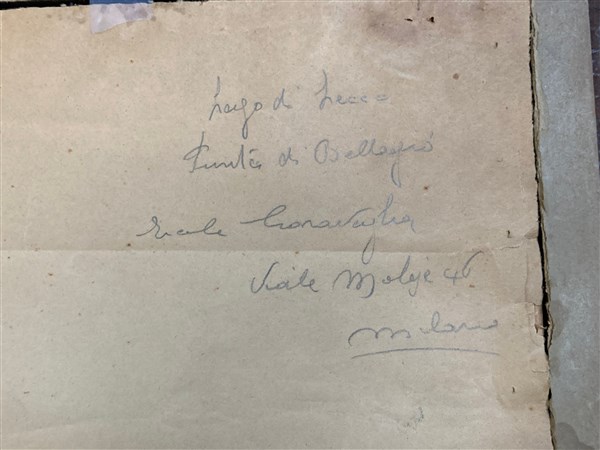 Lago di Lecco
Punta di Bellagio
Ercole Garavaglia
Viale Molise 46
Milano